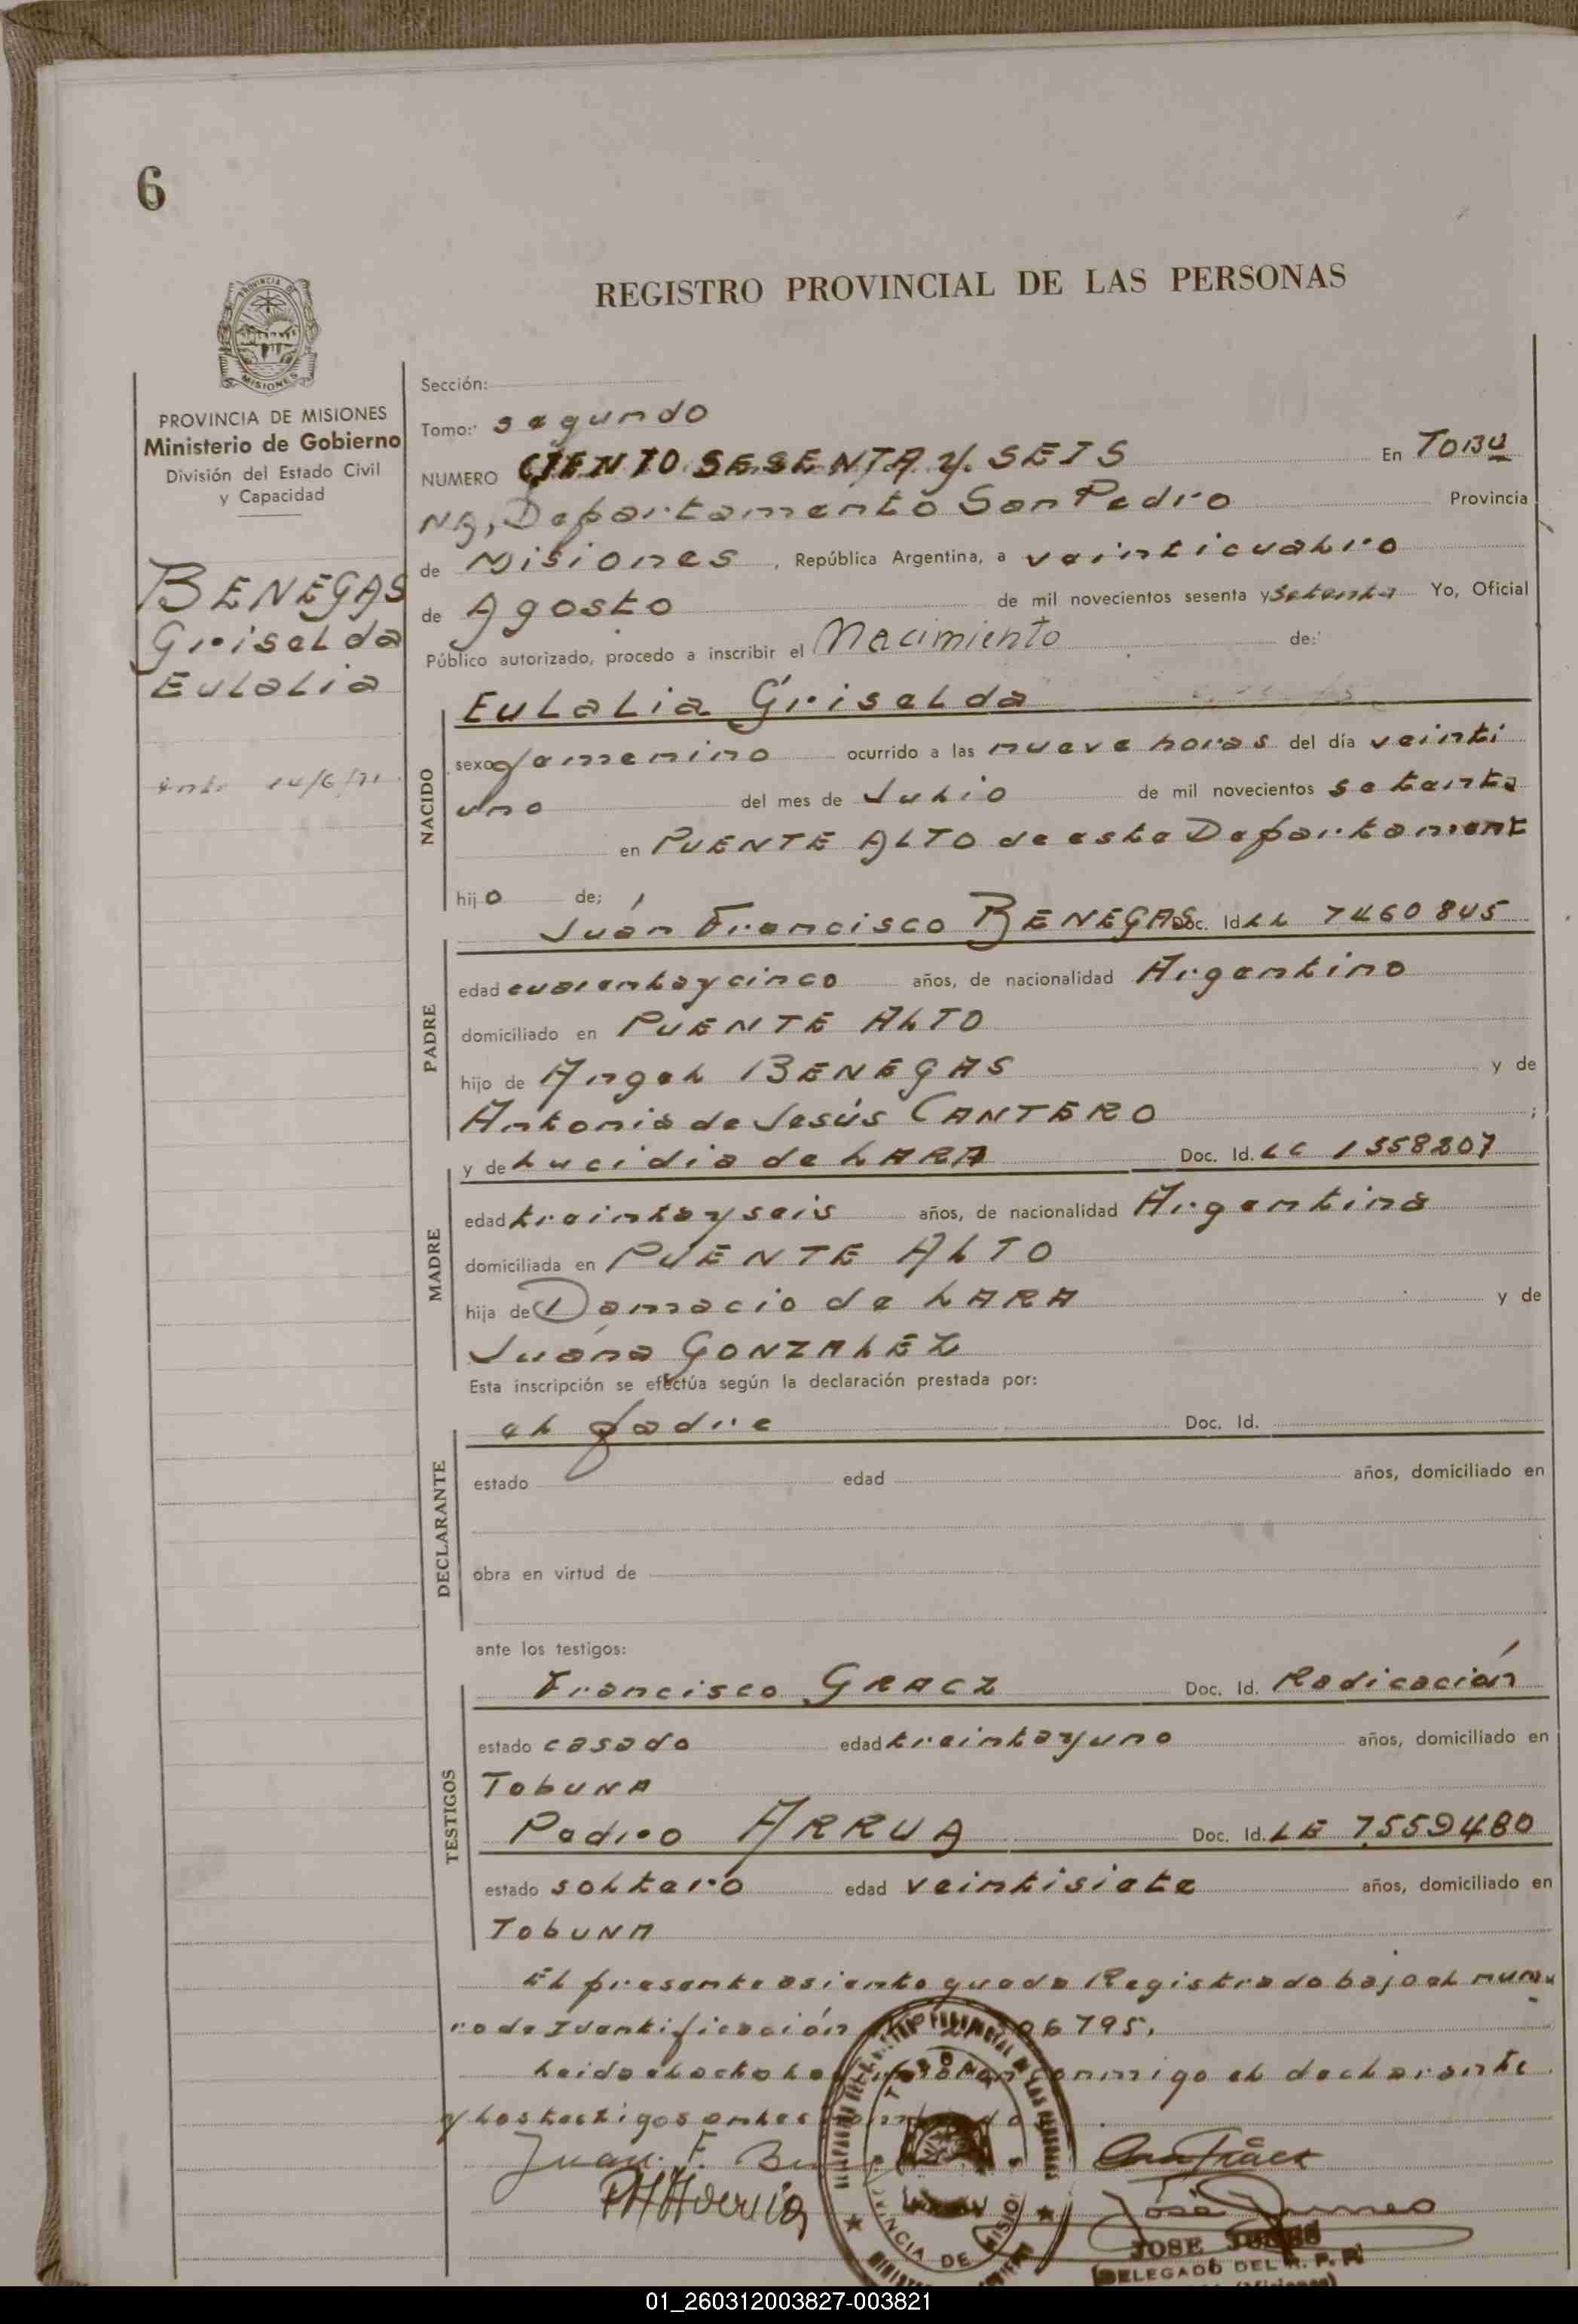 6
REGISTRO PROVINCIAL DE LAS PERSONAS
PROVINCIA DE MISIONES
PROVINCIA DE MISIONES
Ministerio de Gobierno
División del Estado Civil
y Capacidad
BENEGAS
Griselda
Eulalia
14/6/71
Sección:
Tomo: segundo
NUMERO CIENTO SESENTA Y SEIS En TOBU
NA, Departamento San Pedro Provincia
de Misiones, República Argentina, a veinticuatro
de Agosto de mil novecientos sesenta y setenta Yo, Oficial
Público autorizado, procedo a inscribir el Nacimiento de:
Eulalia Griselda
NACIDO
sexo femenino ocurrido a las nueve horas del día veinti
uno del mes de Julio de mil novecientos setenta
en PUENTE ALTO de este Departament
hijo de;
Juan Francisco BENEGAS Doc. Id. 7460845
PADRE
edad cuarentaycinco años, de nacionalidad Argentino
domiciliado en PUENTE ALTO
hijo de Angel BENEGAS y de
Antonia de Jesús CANTERO ;
y de Lucidia de LARA Doc. Id. LC 1558207
MADRE
edad treintayseis años, de nacionalidad Argentina
domiciliada en PUENTE ALTO
hija de Damacio de LARA y de
Juana GONZALEZ
Esta inscripción se efectúa según la declaración prestada por:
el padre Doc. Id.
DECLARANTE
estado edad años, domiciliado en
obra en virtud de
ante los testigos:
Francisco GRACZ Doc. Id. Radicación
TESTIGOS
estado casado edad treintayuno años, domiciliado en
TobUNA
Pedro ARRUA Doc. Id. LE 7.559480
estado soltero edad veintisiete años, domiciliado en
TobUNA
El presente asiento queda Registrado bajo el nume
ro de Identificación 06795.
Leida el acta la conmigo el declarante
y los testigos antes
Juan. F.
JOSE
DELEGADO DEL R. P. P.
(Misiones)
01_260312003827-003821